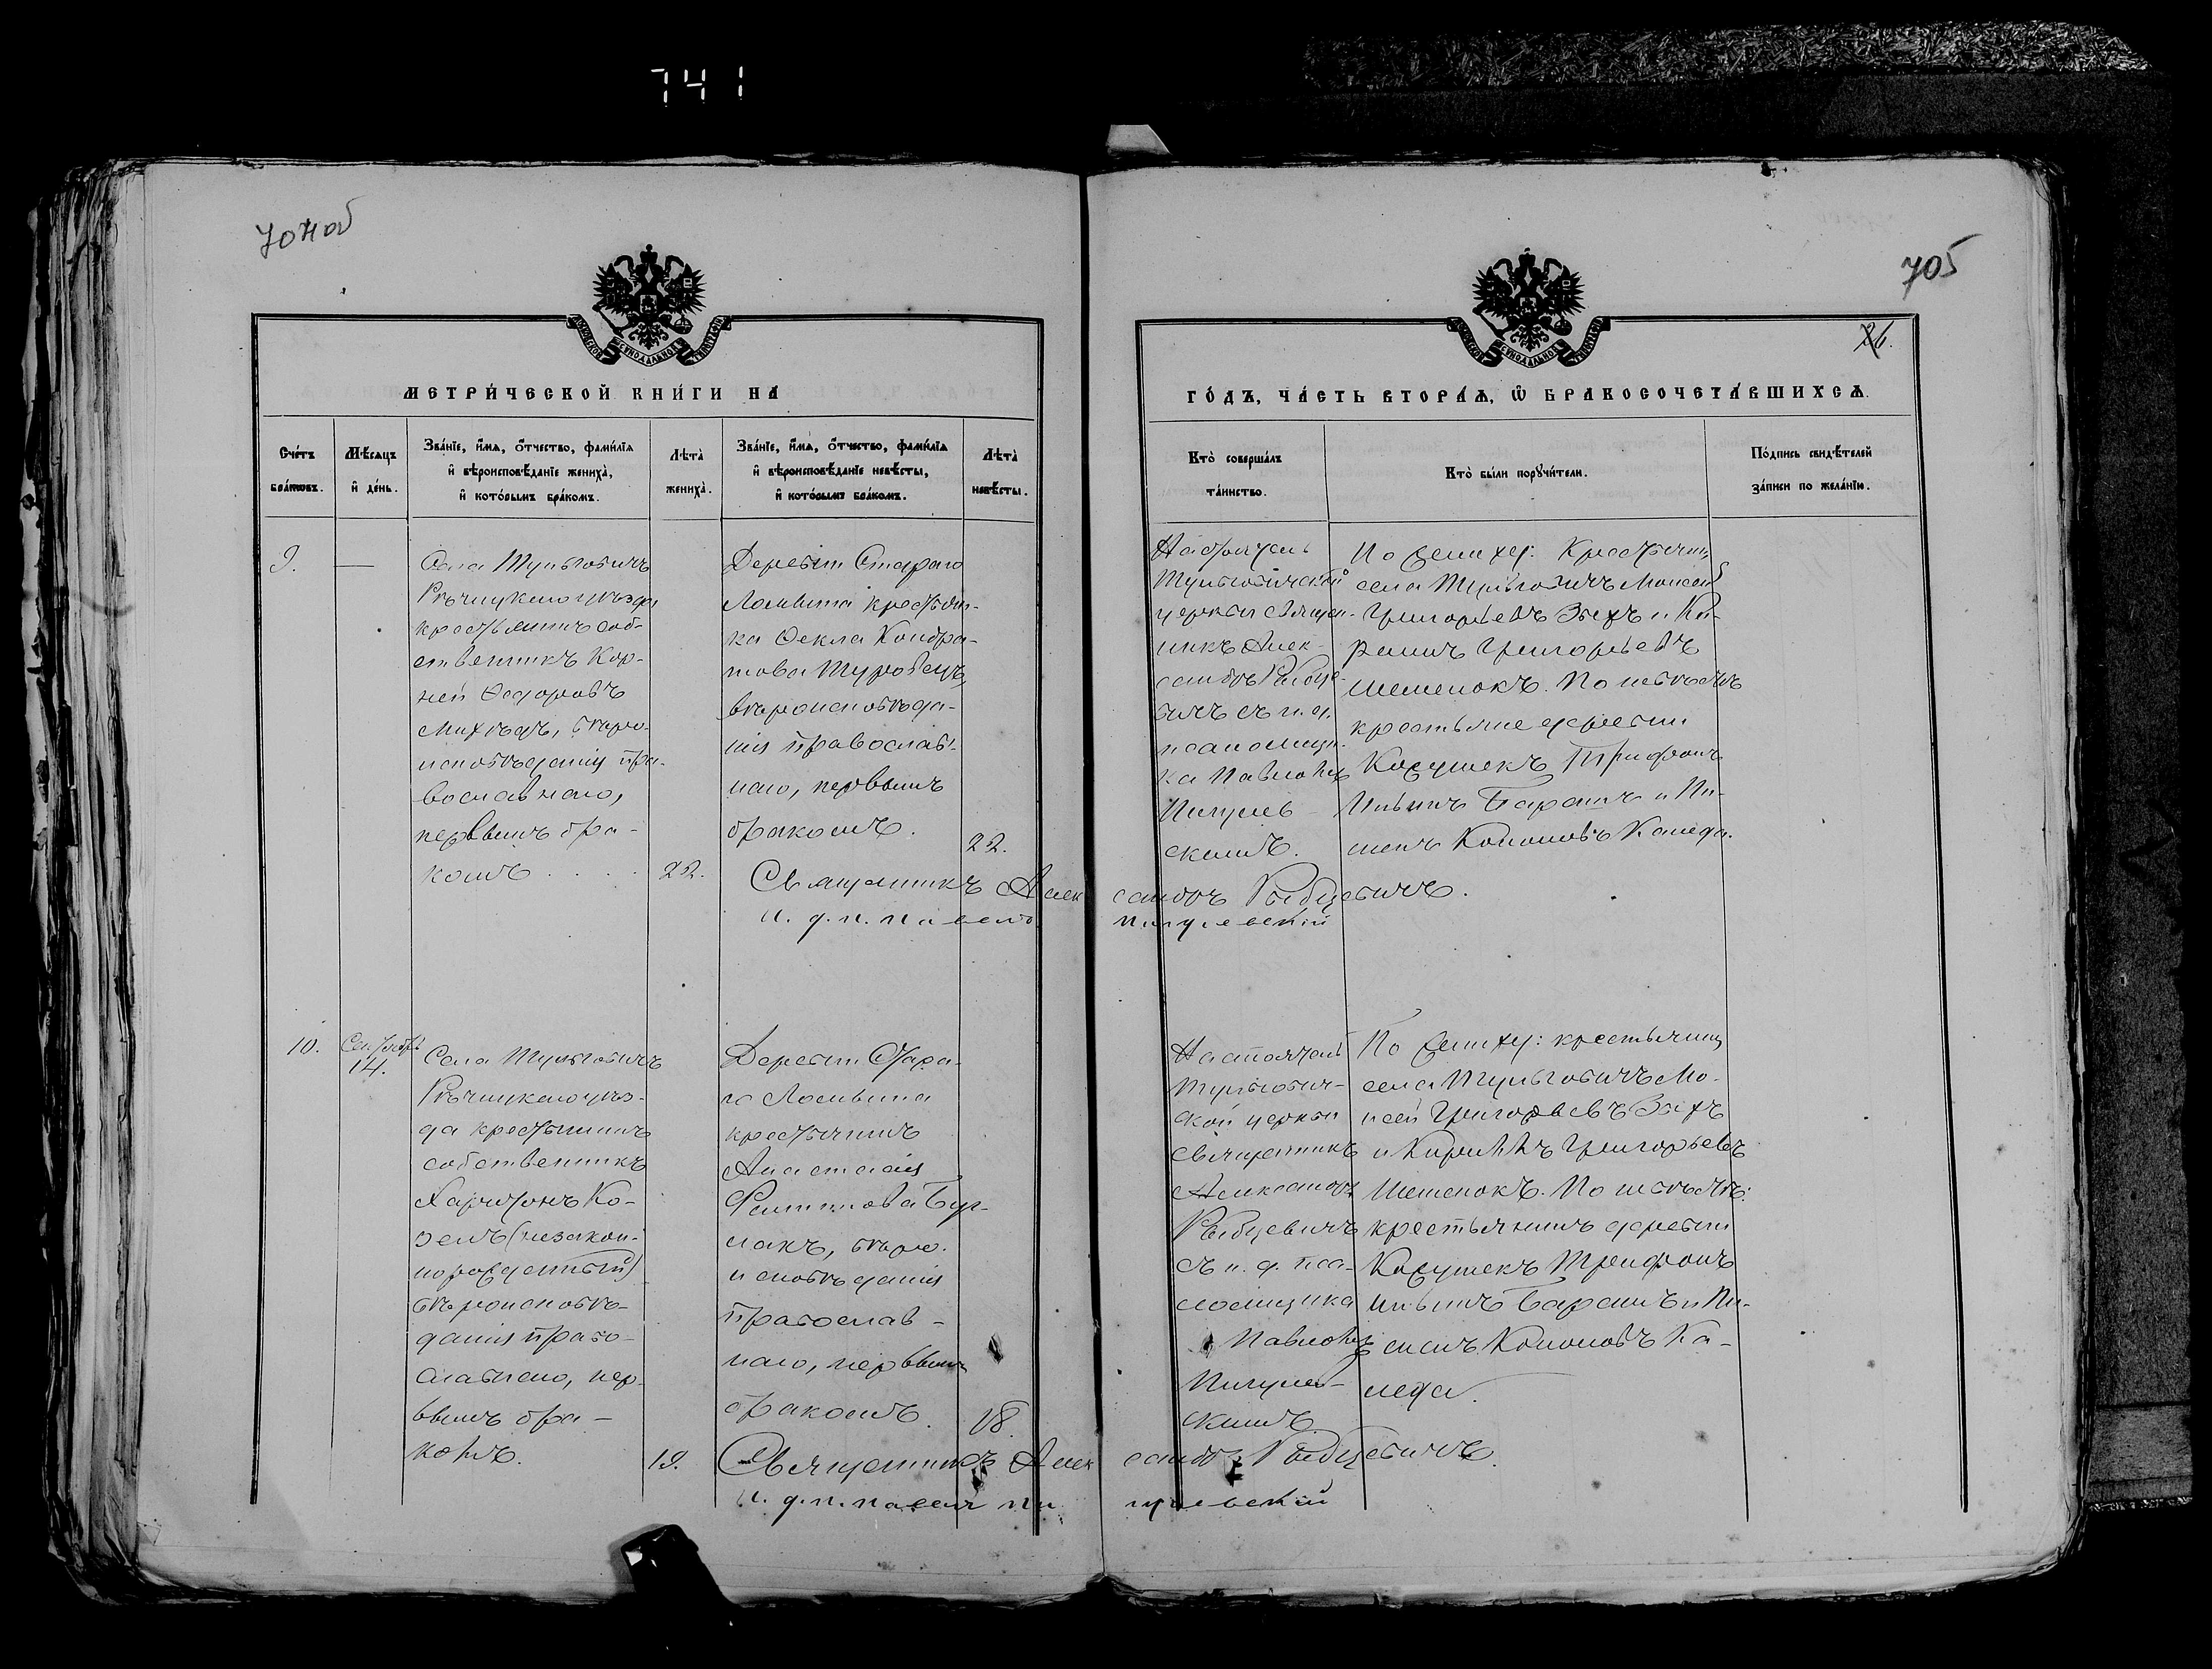 741
704 об
705
26.
МЕТРИ́ЧЕСКОЙ КНИ́ГИ НА
ГО́ДЪ, ЧА́СТЬ ВТОРА́Ѧ, Ѡ БРАКОСОЧЕТА́ВШИХСѦ.
Сче́тъ бра́ковъ.
Мѣ́сѧцъ и҆ де́нь.
Зва́нїе, и҆́мѧ, ѻ҆́тчество, фами́лїѧ
и҆ вѣроисповѣ́данїе жениха̀,
и҆ кото́рымъ бра́комъ.
Лѣта̀ жениха̀.
Зва́нїе, и҆́мѧ, ѻ҆́тчество, фами́лїѧ
и҆ вѣроисповѣ́данїе невѣ́сты,
и҆ кото́рымъ бра́комъ.
Лѣта̀ невѣ́сты.
Кто̀ соверша́лъ
та́инство.
Кто̀ бы́ли порꙋчи́тели.
По́дпись свидѣ́телей
за́писи по жела́нїю.
9.
—
Села Тульговичъ
Рѣчицкаго уѣзда
крестьянинъ соб-
ственникъ Кор-
ней Ѳедоровъ
Михѣдъ, вѣро-
исповѣданія пра-
вославнаго,
первымъ бра-
комъ . . . .
22.
Деревни Стараго
Ломыша крестьян-
ка Ѳекла Кондра-
това Туровецъ,
вѣроисповѣда-
нія православ-
наго, первымъ
бракомъ.
22.
Настоятель
Тульговичской
церкви священ-
никъ Алек-
сандръ Рыбце-
вичъ съ и. д.
псаломщи-
ка Павломъ
Пигулев-
скимъ.
По женихѣ: Крестьяне
села Тульговичъ Моисей
Григорьевъ Зыхъ и Ки-
риллъ Григорьевъ
Шешенокъ. По невѣстѣ
крестьяне деревни
Кожушекъ Трифонъ
Ильинъ Баранъ и Пи-
менъ Кононовъ Каледа.
Священникъ Александръ Рыбцевичъ.
И. д. п. Павелъ Пигулевскій
10.
Сентябрь
14.
Села Тульговичъ
Рѣчицкаго уѣз-
да крестьянинъ
собственникъ
Харитонъ Ко-
зелъ (незакон-
норожденный)
вѣроисповѣ-
данія право-
славнаго, пер-
вымъ бра-
комъ.
19.
Деревни Стара-
го Ломыша
крестьянинъ
Анастасія
Филиппова Бур-
лакъ, вѣро-
исповѣданія
православ-
наго, первымъ
бракомъ.
18.
Настоятель
Тульгович-
ской церкви
священникъ
Александръ
Рыбцевичъ
съ и. д. пса-
ломщика
Павломъ
Пигулев-
скимъ.
По жениху: крестьяне
села Тульговичъ Мо-
исей Григорьевъ Зыхъ
и Кириллъ Григорьевъ
Шешенокъ. По невѣстѣ:
крестьянинъ деревни
Кожушекъ Трифонъ
Ильинъ Баранъ и Пи-
менъ Кононовъ Ка-
леда.
Священникъ Александръ Рыбцевичъ.
И. д. п. Павелъ Пигулевскій